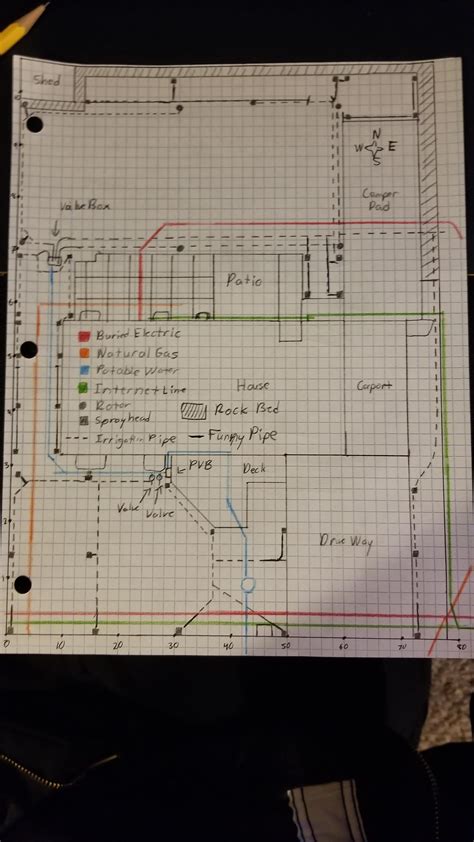 Shed
N
W E
S
Valve Box
Camper
Pad
Patio
Buried Electric
Natural Gas
Potable Water
Internet Line
House
Carport
Rotor
Rock Bed
Sprayhead
Irrigation Pipe
Funny Pipe
PVB
Deck
Valve
Valve
Drive Way
6
5
3
2
1
0
10
20
30
40
50
60
70
80